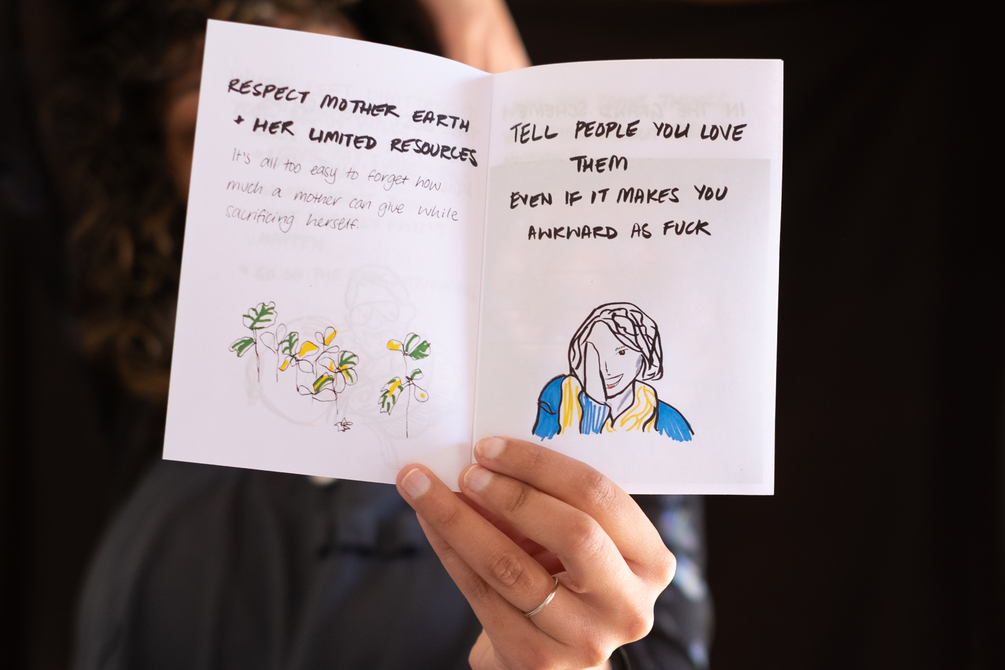 RESPECT MOTHER EARTH
+ HER LIMITED RESOURCES
It's all too easy to forget how
much a mother can give while
sacrificing herself.
TELL PEOPLE YOU LOVE
THEM
EVEN IF IT MAKES YOU
AWKWARD AS FUCK